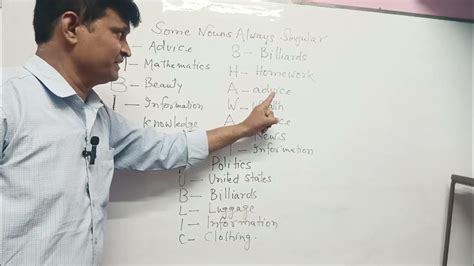 Some Nouns Always Singular
Advice
Mathematics
B - Beauty
I - Information
Knowledge
B - Billiards
H - Homework
A - advice
W -
A -
News
I - Information
Politics
U - United States
B - Billiards
L - Luggage
I - Information
C - Clothing.